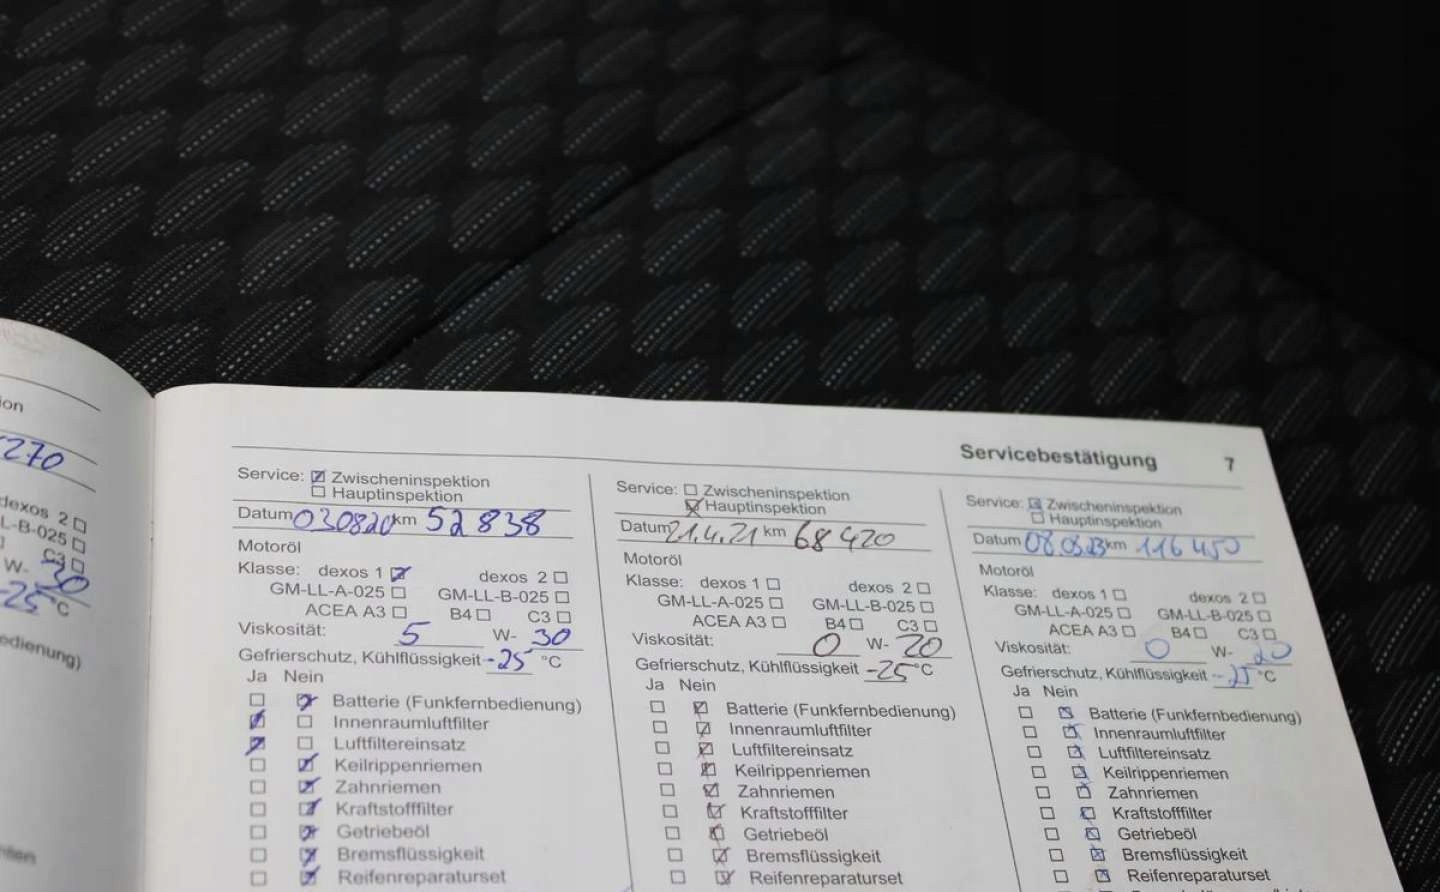 ion
270
dexos 2
L-B-025
C3
W- 30
-25 °C
edienung)
Servicebestätigung 7
Service: Zwischeninspektion
Hauptinspektion
Datum 030820 km 52 838
Motoröl
Klasse: dexos 1 dexos 2
GM-LL-A-025 GM-LL-B-025
ACEA A3 B4 C3
Viskosität: 5 W- 30
Gefrierschutz, Kühlflüssigkeit -25 °C
Ja Nein
Batterie (Funkfernbedienung)
Innenraumluftfilter
Luftfiltereinsatz
Keilrippenriemen
Zahnriemen
Kraftstofffilter
Getriebeöl
Bremsflüssigkeit
Reifenreparaturset
Service: Zwischeninspektion
Hauptinspektion
Datum 21.4.21 km 68 420
Motoröl
Klasse: dexos 1 dexos 2
GM-LL-A-025 GM-LL-B-025
ACEA A3 B4 C3
Viskosität: 0 W- 20
Gefrierschutz, Kühlflüssigkeit -25 °C
Ja Nein
Batterie (Funkfernbedienung)
Innenraumluftfilter
Luftfiltereinsatz
Keilrippenriemen
Zahnriemen
Kraftstofffilter
Getriebeöl
Bremsflüssigkeit
Reifenreparaturset
Service: Zwischeninspektion
Hauptinspektion
Datum km 116 450
Motoröl
Klasse: dexos 1 dexos 2
GM-LL-A-025 GM-LL-B-025
ACEA A3 B4 C3
Viskosität: 0 W- 20
Gefrierschutz, Kühlflüssigkeit -25 °C
Ja Nein
Batterie (Funkfernbedienung)
Innenraumluftfilter
Luftfiltereinsatz
Keilrippenriemen
Zahnriemen
Kraftstofffilter
Getriebeöl
Bremsflüssigkeit
Reifenreparaturset